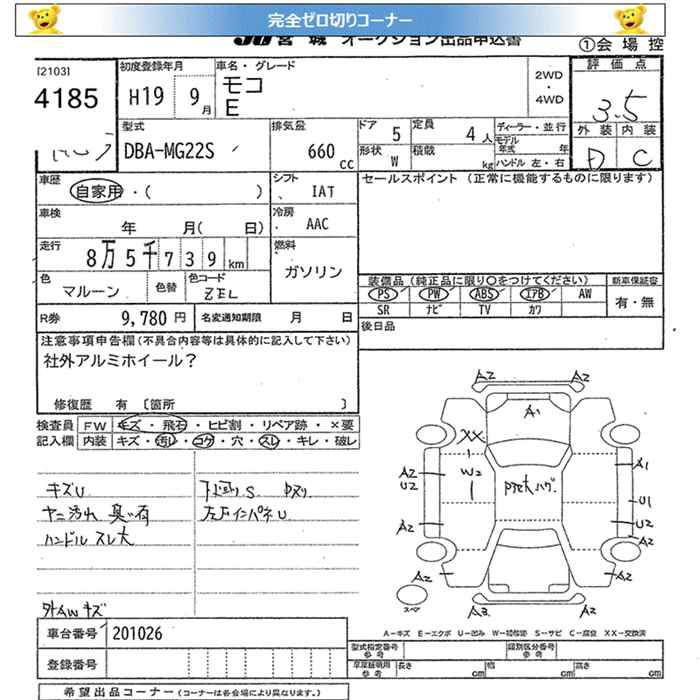 完全ゼロ切りコーナー
JU 宮 城 オークション出品申込書
①会 場 控
[2103]
4185
初度登録年月
H19 9月
車名・グレード
モコ
E
2WD
・
4WD
評 価 点
3.5
外 装 内 装
D C
型式
DBA-MG22S
排気量
660 cc
ドア 5
定員 4人
形状 W
積載 kg
ディーラー・並行
モデル年式 年
ハンドル 左・右
車歴
自家用・( )
シフト
IAT
セールスポイント (正常に機能するものに限ります)
車検
年 月( 日)
冷房
AAC
走行
8万5千739km
燃料
ガソリン
色
マルーン
色替
色コード
ZEL
装備品 (純正品に限り○をつけてください)
PS PW ABS エアB AW
SR ナビ TV カワ
新車保証書
有・無
R券 9,780 円
名変通知期限 月 日
後日品
注意事項申告欄(不具合内容等は具体的に記入して下さい)
社外アルミホイール?
修復歴 有 〔箇所 〕
検査員記入欄
FW キズ・飛石・ヒビ割・リペア跡・×要
内装 キズ・汚れ・コゲ・穴・スレ・キレ・破レ
キズU
ヤニ汚れ 臭い有
ハンドル スレ大
下回りS
外AWキズ
車台番号 201026
登録番号
希望出品コーナー (コーナーは各会場により異なります。)
A2 A2
A1
XX
W2
A2
U2
A1
U1
U2
A2
A2
A2
A2
A3 A2
スペア
A-キズ E-エクボ U-凹み W-補修跡 S-サビ C-腐食 XX-交換済
型式指定番号
参考
類別区分番号
参考
車庫証明用
参考
長さ cm 幅 cm 高さ cm